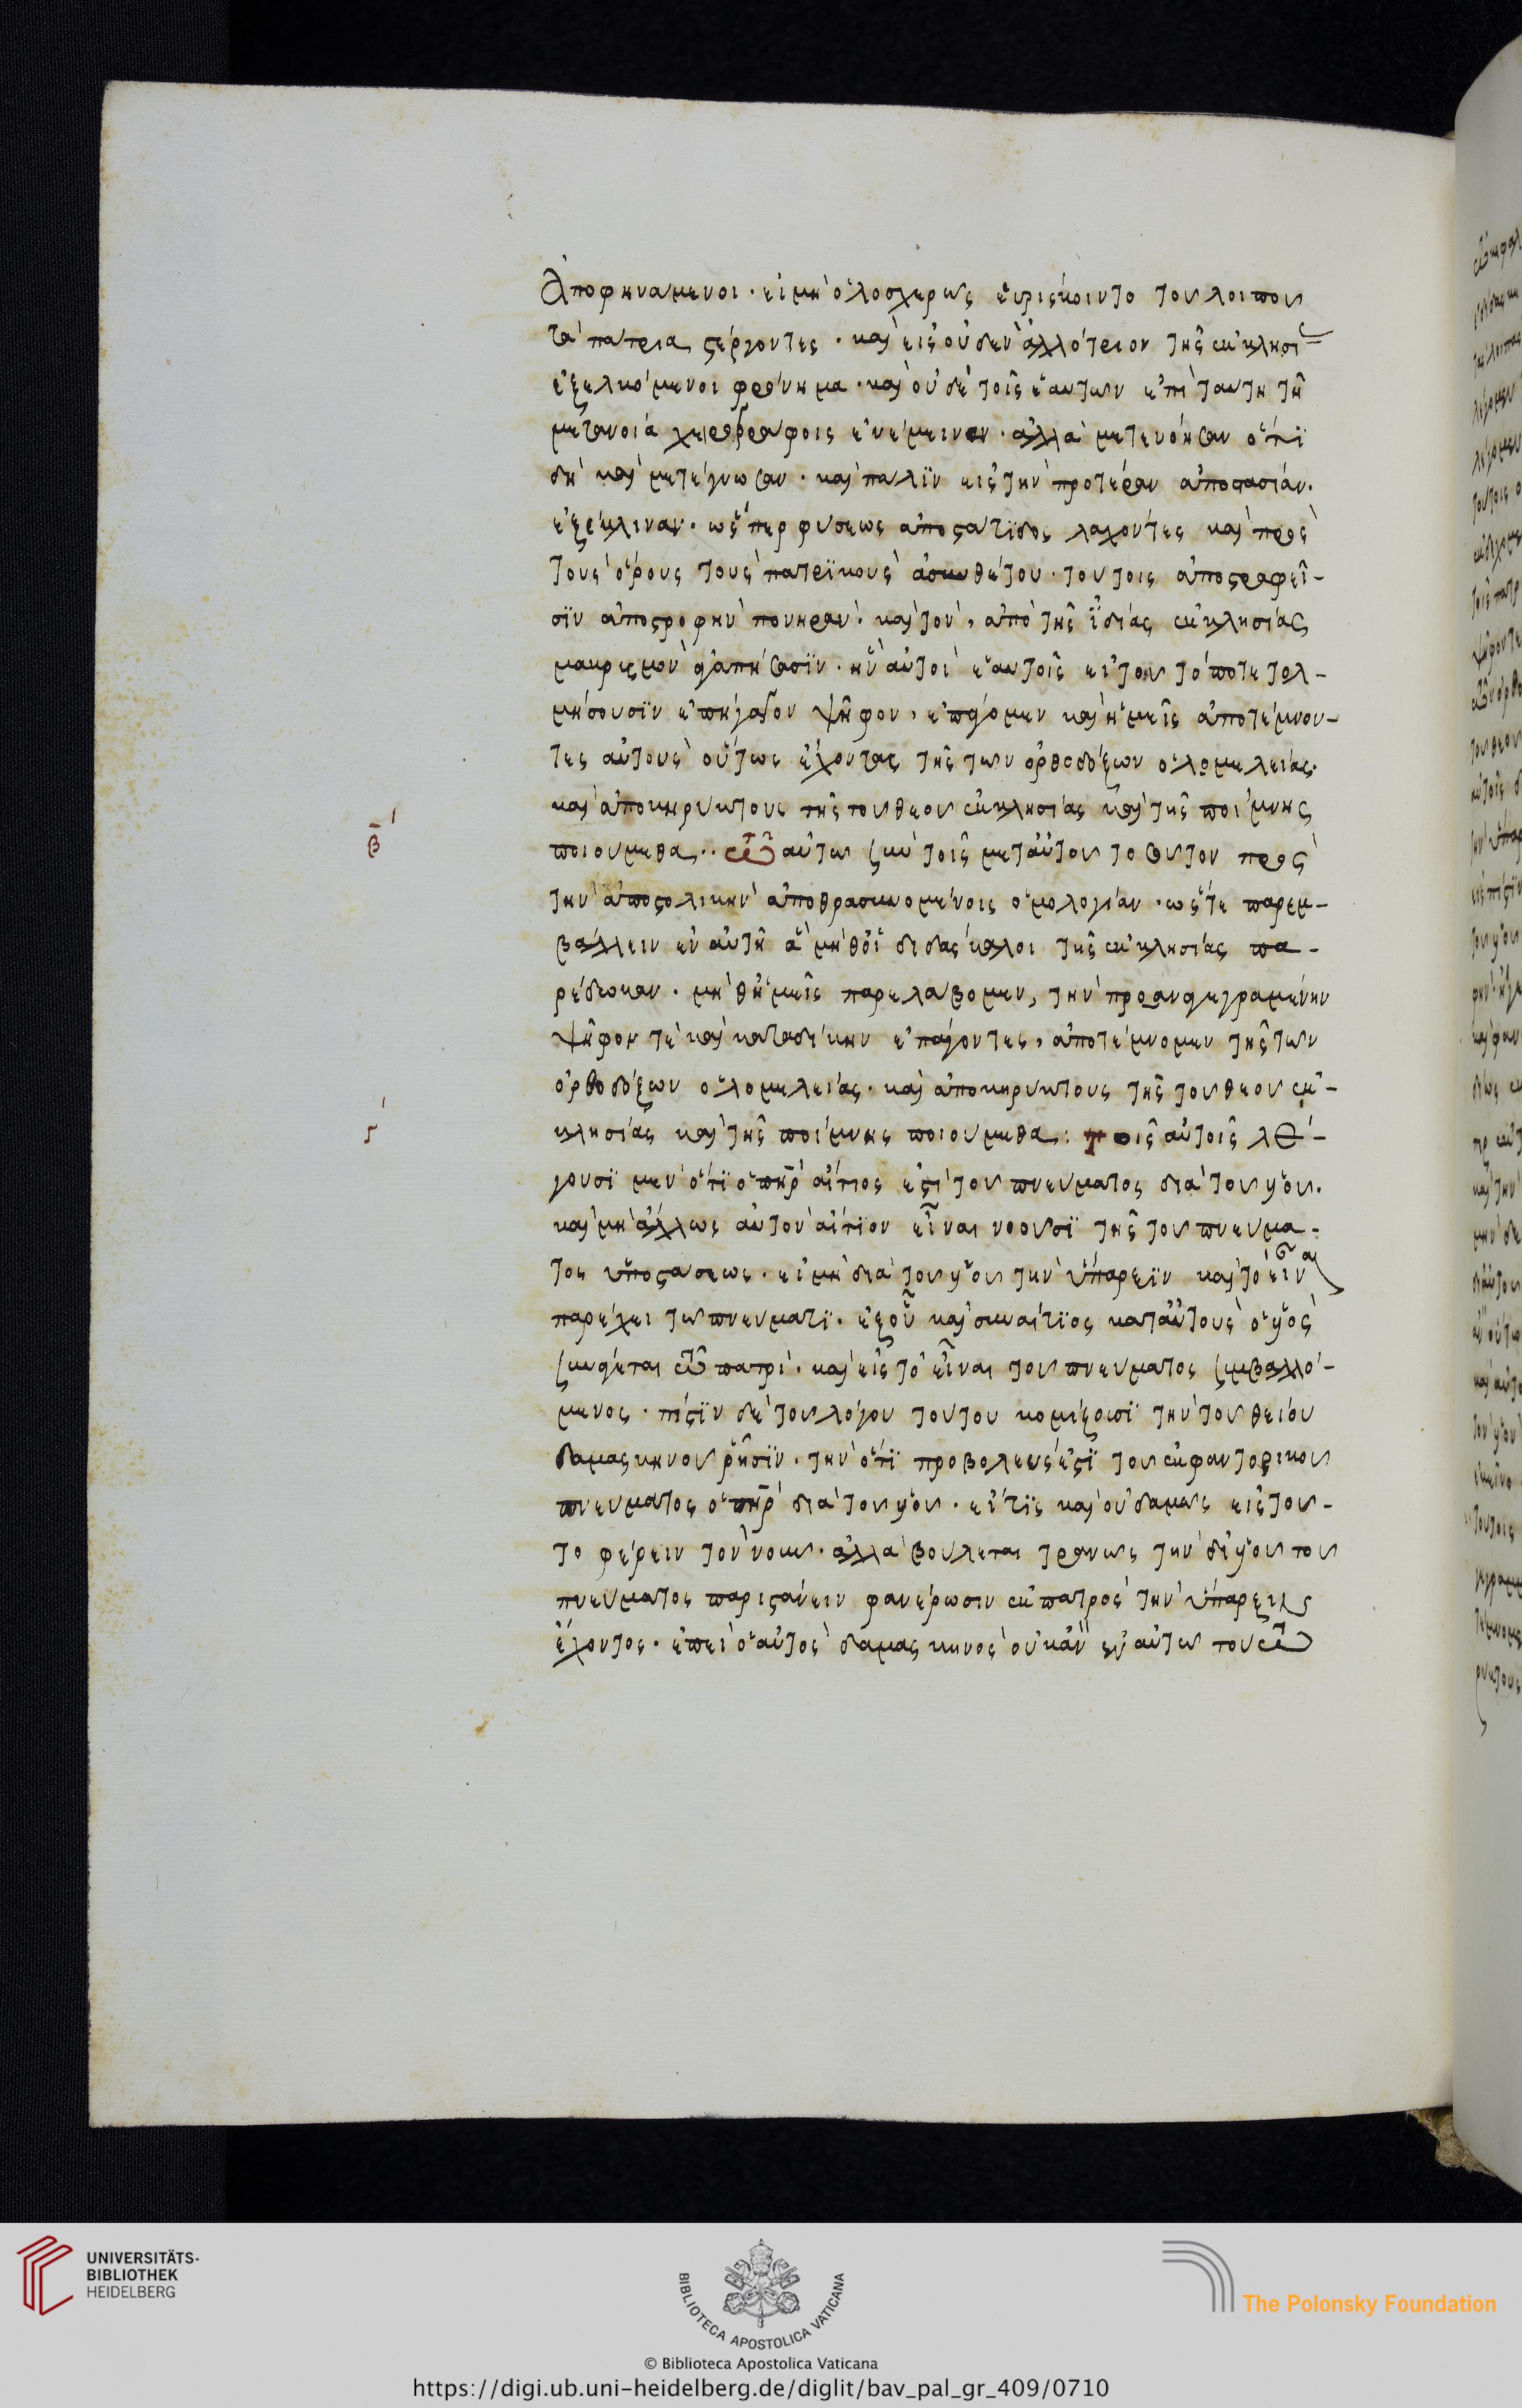 Ἀποφηνάμενοι· εἰ μὴ ὁλοσχερῶς εὑρίσκοιντο τοῦ λοιποῦ
τὰ πάτρια στέργοντες· καὶ εἰς οὐδὲν ἀλλότριον τῆς ἐκκλησί
ἐξελκόμενοι φρόνημα· καὶ οὐδὲ τοῖς ἑαυτῶν ἐπὶ ταύτη τῆ
μετανοία χειρογράφοις ἐνέμειναν· ἀλλὰ μετενόησαν ὅτι
δὴ καὶ μετέγνωσαν· καὶ πάλιν εἰς τὴν προτέραν ἀποστασίαν·
ἐξέκλιναν· ὥσπερ φύσεως ἀποστάτιδος λαχόντες καὶ πρὸς
τοὺς ὅρους τοὺς πατρικοὺς ἀσυνθέτου· τούτοις ἀποστραφεῖ-
σιν ἀποστροφὴν πονηρὰν· καὶ τὸν, ἀπὸ τῆς ἰδίας ἐκκλησίας
μακρυσμὸν ἀγαπήσασιν· ἣν αὐτοὶ ἑαυτοῖς εἰ τοῦτό ποτε τολ-
μήσουσιν ἐπήγαγον ψῆφον, ἐπάγομεν καὶ ἡμεῖς ἀποτέμνον-
τες αὐτοὺς οὕτως ἔχοντας τῆς τῶν ὀρθοδόξων ὁλομελείας·
καὶ ἀποκηρύκτους τῆς τοῦ θεοῦ ἐκκλησίας καὶ τῆς ποίμνης
β ποιούμεθα·· ἐπὶ αὐτῶ σὺν τοῖς μετ αὐτοῦ τοσοῦτον πρὸς
τὴν ἀποστολικὴν ἀποθρασυνομένοις ὁμολογίαν· ὥστε παρεμ-
βάλλειν ἐν αὐτῆ ἃ μὴ θ οἱ διδάσκαλοι τῆς ἐκκλησίας πα-
ρέδωκαν· μὴ θ ἡμεῖς παρελάβομεν, τὴν προαναγεγραμένην
ψῆφον τὲ καὶ καταδίκην ἐπάγοντες, ἀποτέμνομεν τῆς τῶν
ὀρθοδόξων ὁλομελείας· καὶ ἀποκηρύκτους τῆς τοῦ θεοῦ ἐκ-
ς κλησίας καὶ τῆς ποίμνης ποιούμεθα: τοῖς αὐτοῖς λέ-
γουσι μὲν ὅτι ὁ πηρ αἴτιος ἐστὶ τοῦ πνεύματος διὰ τοῦ υἱοῦ·
καὶ μὴ ἄλλως αὐτὸν αἴτιον εἶναι νοοῦσι τῆς τοῦ πνεύμα-
τος ὑποστάσεως· εἰ μὴ διὰ τοῦ υἱοῦ τὴν ὕπαρξιν καὶ τὸ εἶναι
παρέχει τῶ πνεύματι· ἐξ οὗ καὶ συναίτιος κατ αὐτοὺς ὁ υἱὸς
συνάγεται τῶ πατρὶ· καὶ εἰς τὸ εἶναι τοῦ πνεύματος συμβαλλό-
μενος· πίστιν δὲ τοῦ λόγου τούτου κομίζουσι τὴν τοῦ θείου
δαμασκηνοῦ ῥῆσιν· τὴν ὅτι προβολεὺς ἐστὶ τοῦ ἐκφαντορικοῦ
πνεύματος ὁ πηρ διὰ τοῦ υἱοῦ· εἴτις καὶ οὐδαμῶς εἰς τοῦ-
το φέρειν τὸν νοῦν· ἀλλὰ βούλεται τρανῶς τὴν δι υἱοῦ τοῦ
πνεύματος παριστάνειν φανέρωσιν ἐκ πατρὸς τὴν ὕπαρξιν
ἔχοντος· ἐπεὶ ὁ αὐτὸς δαμασκηνὸς οὐκ ἂν ἐν αὐτῶ τούτω
UNIVERSITÄTS-
BIBLIOTHEK
HEIDELBERG
BIBLIOTECA APOSTOLICA VATICANA
The Polonsky Foundation
© Biblioteca Apostolica Vaticana
https://digi.ub.uni-heidelberg.de/diglit/bav_pal_gr_409/0710